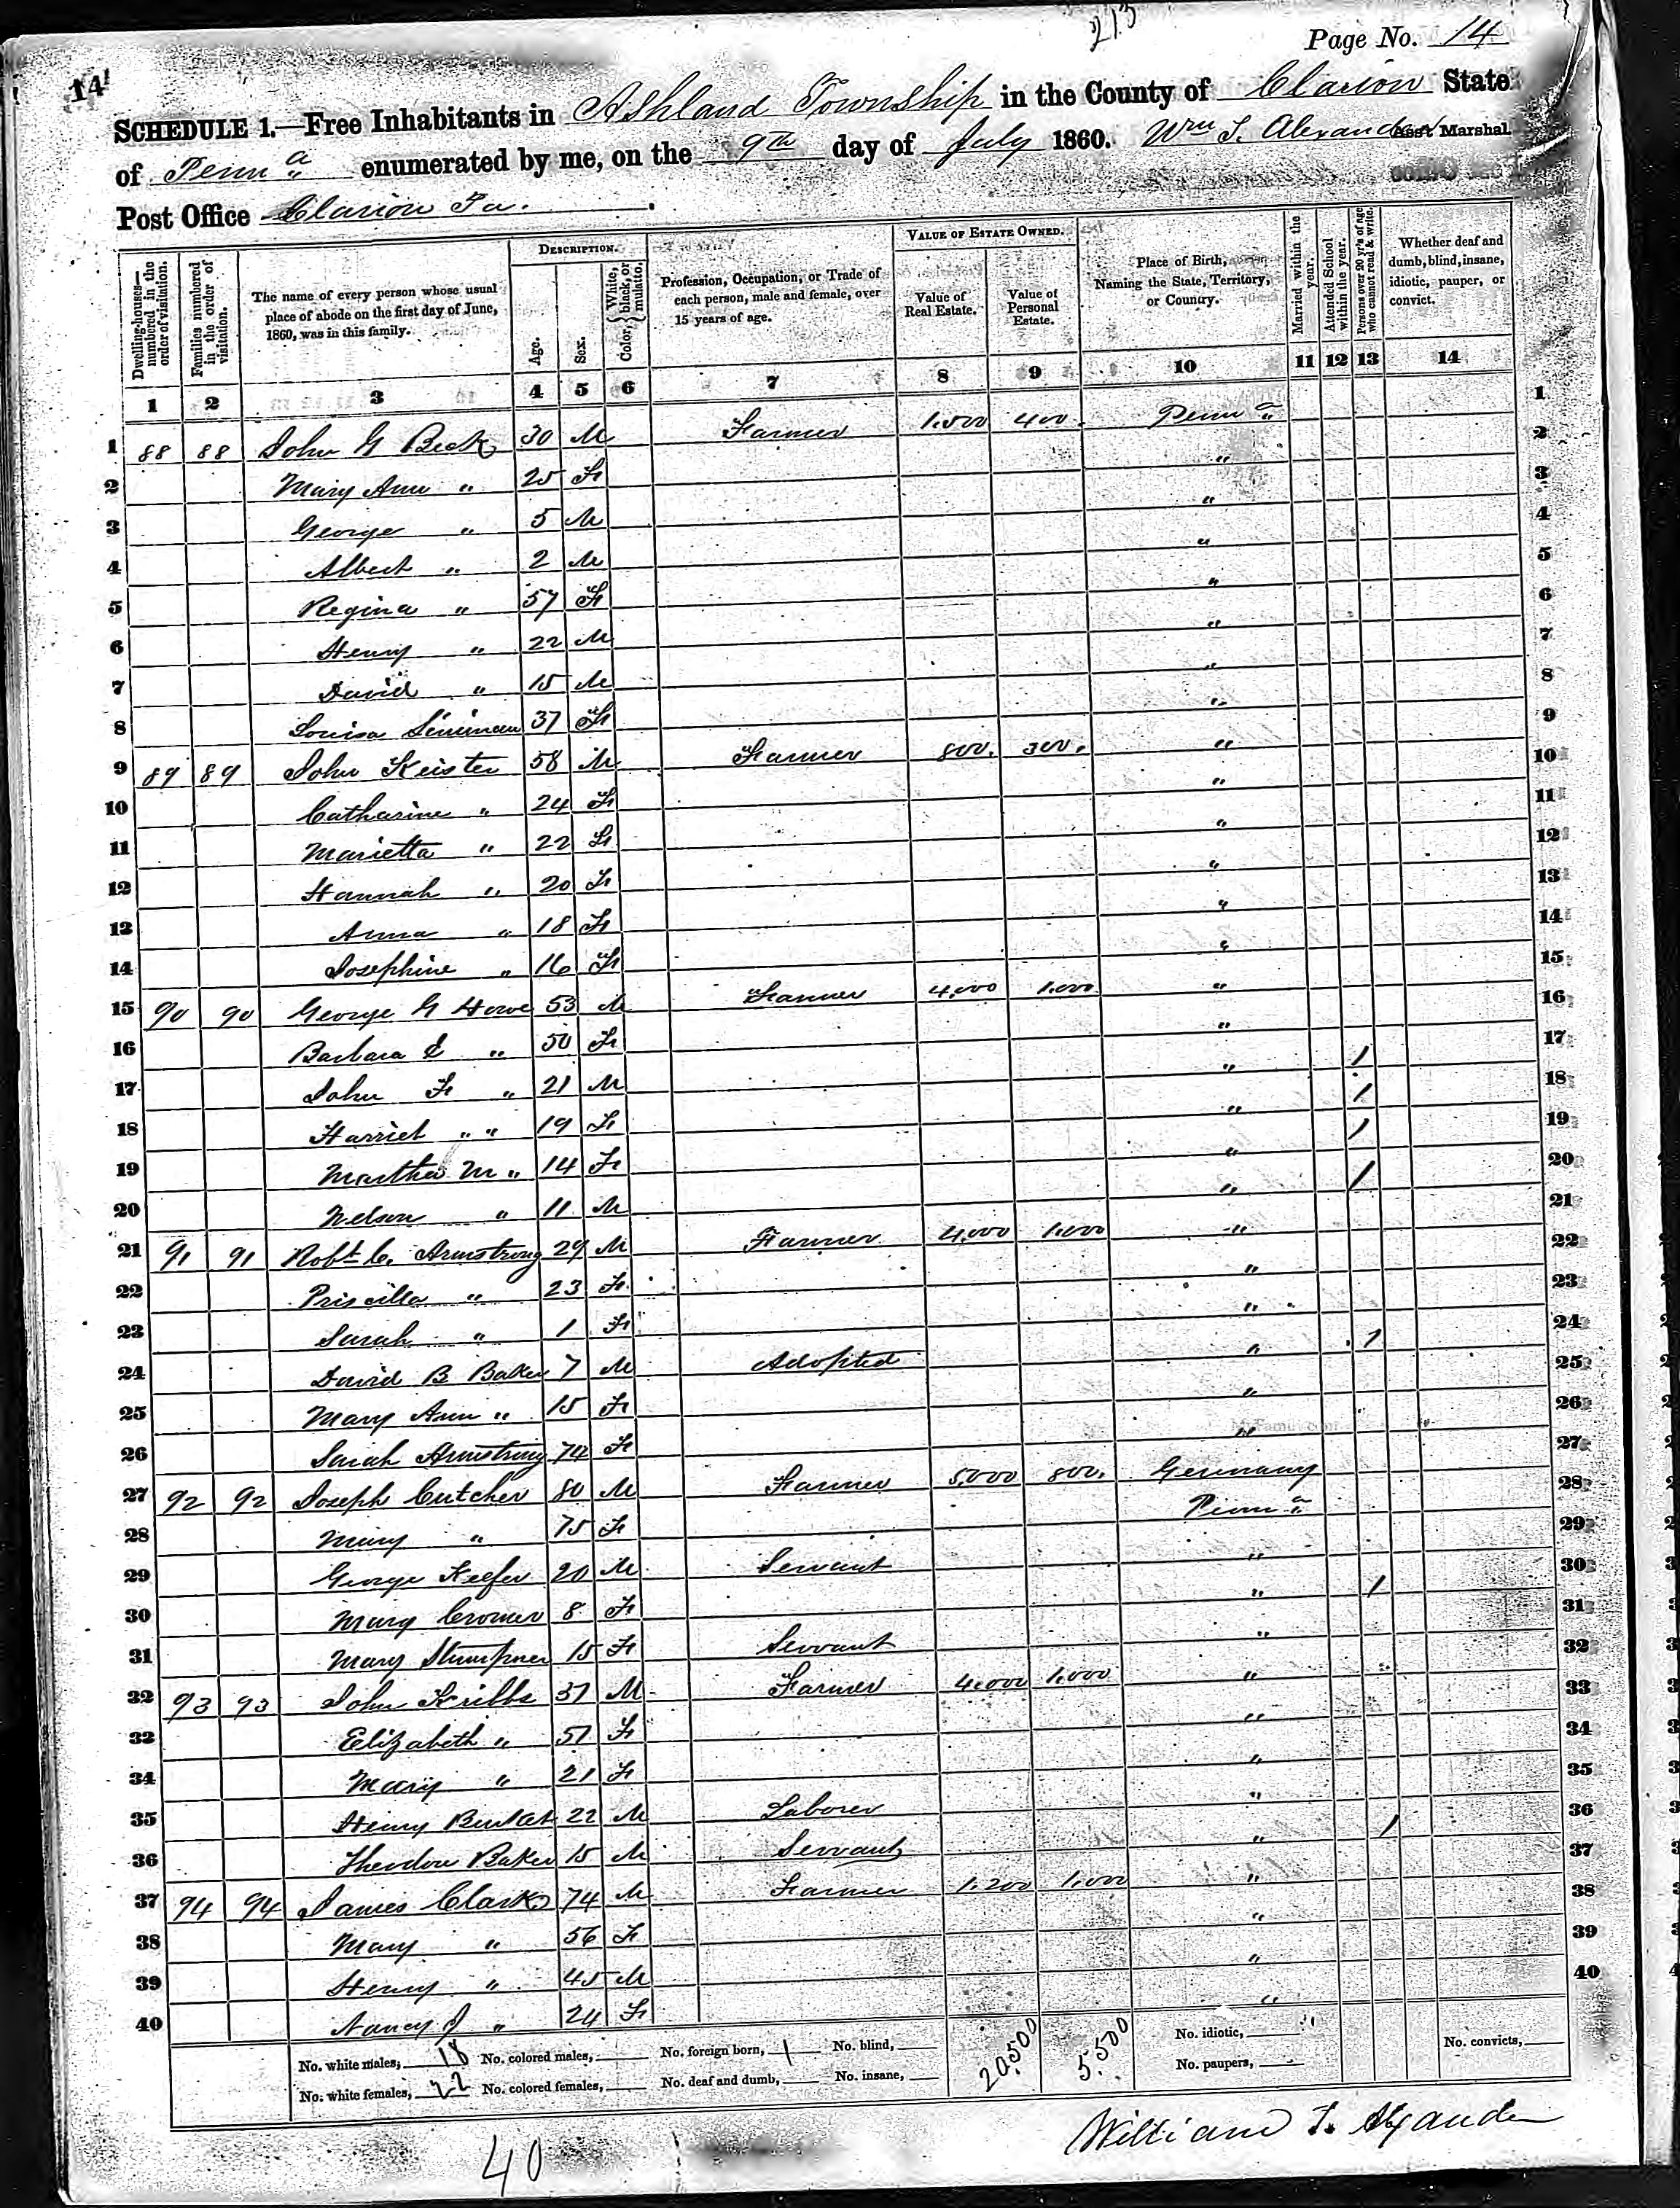 213
Page No. 14
14
SCHEDULE 1.—Free Inhabitants in Ashland Township in the County of Clarion State
of Penn a enumerated by me, on the 9th day of July 1860. Wm T. Alexander Ass't Marshal.
Post Office Clarion Pa.
Dwelling-houses—numbered in the order of visitation.
Families numbered in the order of visitation.
The name of every person whose usual place of abode on the first day of June, 1860, was in this family.
DESCRIPTION.
Age.
Sex.
Color, { White, black, or mulatto.
Profession, Occupation, or Trade of each person, male and female, over 15 years of age.
VALUE OF ESTATE OWNED.
Value of Real Estate.
Value of Personal Estate.
Place of Birth, Naming the State, Territory, or Country.
Married within the year.
Attended School within the year.
Persons over 20 y'rs of age who cannot read & write.
Whether deaf and dumb, blind, insane, idiotic, pauper, or convict.
1 2 3 4 5 6 7 8 9 10 11 12 13 14
1 88 88 John G Beck 30 M Farmer 1.500 400 Penn a 1
2 Mary Ann " 25 F " 2
3 George " 5 M " 3
4 Albert " 2 M " 4
5 Regina " 57 F " 5
6 Henry " 22 M " 6
7 David " 15 M " 7
8 Louisa 37 F " 8
9 89 89 John Keister 58 M Farmer 800. 300. " 9
10 Catharine " 24 F " 10
11 Marietta " 22 F " 11
12 Hannah " 20 F " 12
13 Anna " 18 F " 13
14 Josephine " 16 F " 14
15 90 90 George G Howe 53 M Farmer 4,000 1.000 " 15
16 Barbara E " 50 F " 16
17 John F " 21 M " / 17
18 Harriet " " 19 F " / 18
19 Martha M " 14 F " / 19
20 Nelson " 11 M " / 20
21 91 91 Robt C. Armstrong 29 M Farmer 4,000 1.000 " 21
22 Priscilla " 23 F " 22
23 Sarah " 1 F " 23
24 David B Baker 7 M Adopted " / 24
25 Mary Ann " 15 F " 25
26 Sarah Armstrong 74 F " 26
27 92 92 Joseph Cutcher 80 M Farmer 5.000 800. Germany 27
28 Mary " 75 F Penn a 28
29 George Keefer 20 M Servant " 29
30 Mary Cromer 8 F " / 30
31 Mary 15 F Servant " 31
32 93 93 John Kribbs 37 M Farmer 4.000 1.000 " 32
33 Elizabeth " 51 F " 33
34 Mary " 21 F " 34
35 Henry 22 M Laborer " 35
36 Theodore Baker 15 M Servant " / 36
37 94 94 James Clark 74 M Farmer 1.200 1.000 " 37
38 Mary " 56 F " 38
39 Henry " 45 M " 39
40 Nancy J " 24 F " 40
No. white males, 18 No. colored males, No. foreign born, 1 No. blind, 20.500 5.500 No. idiotic, No. convicts,
No. white females, 22 No. colored females, No. deaf and dumb, No. insane, No. paupers,
William T. Alexander
40